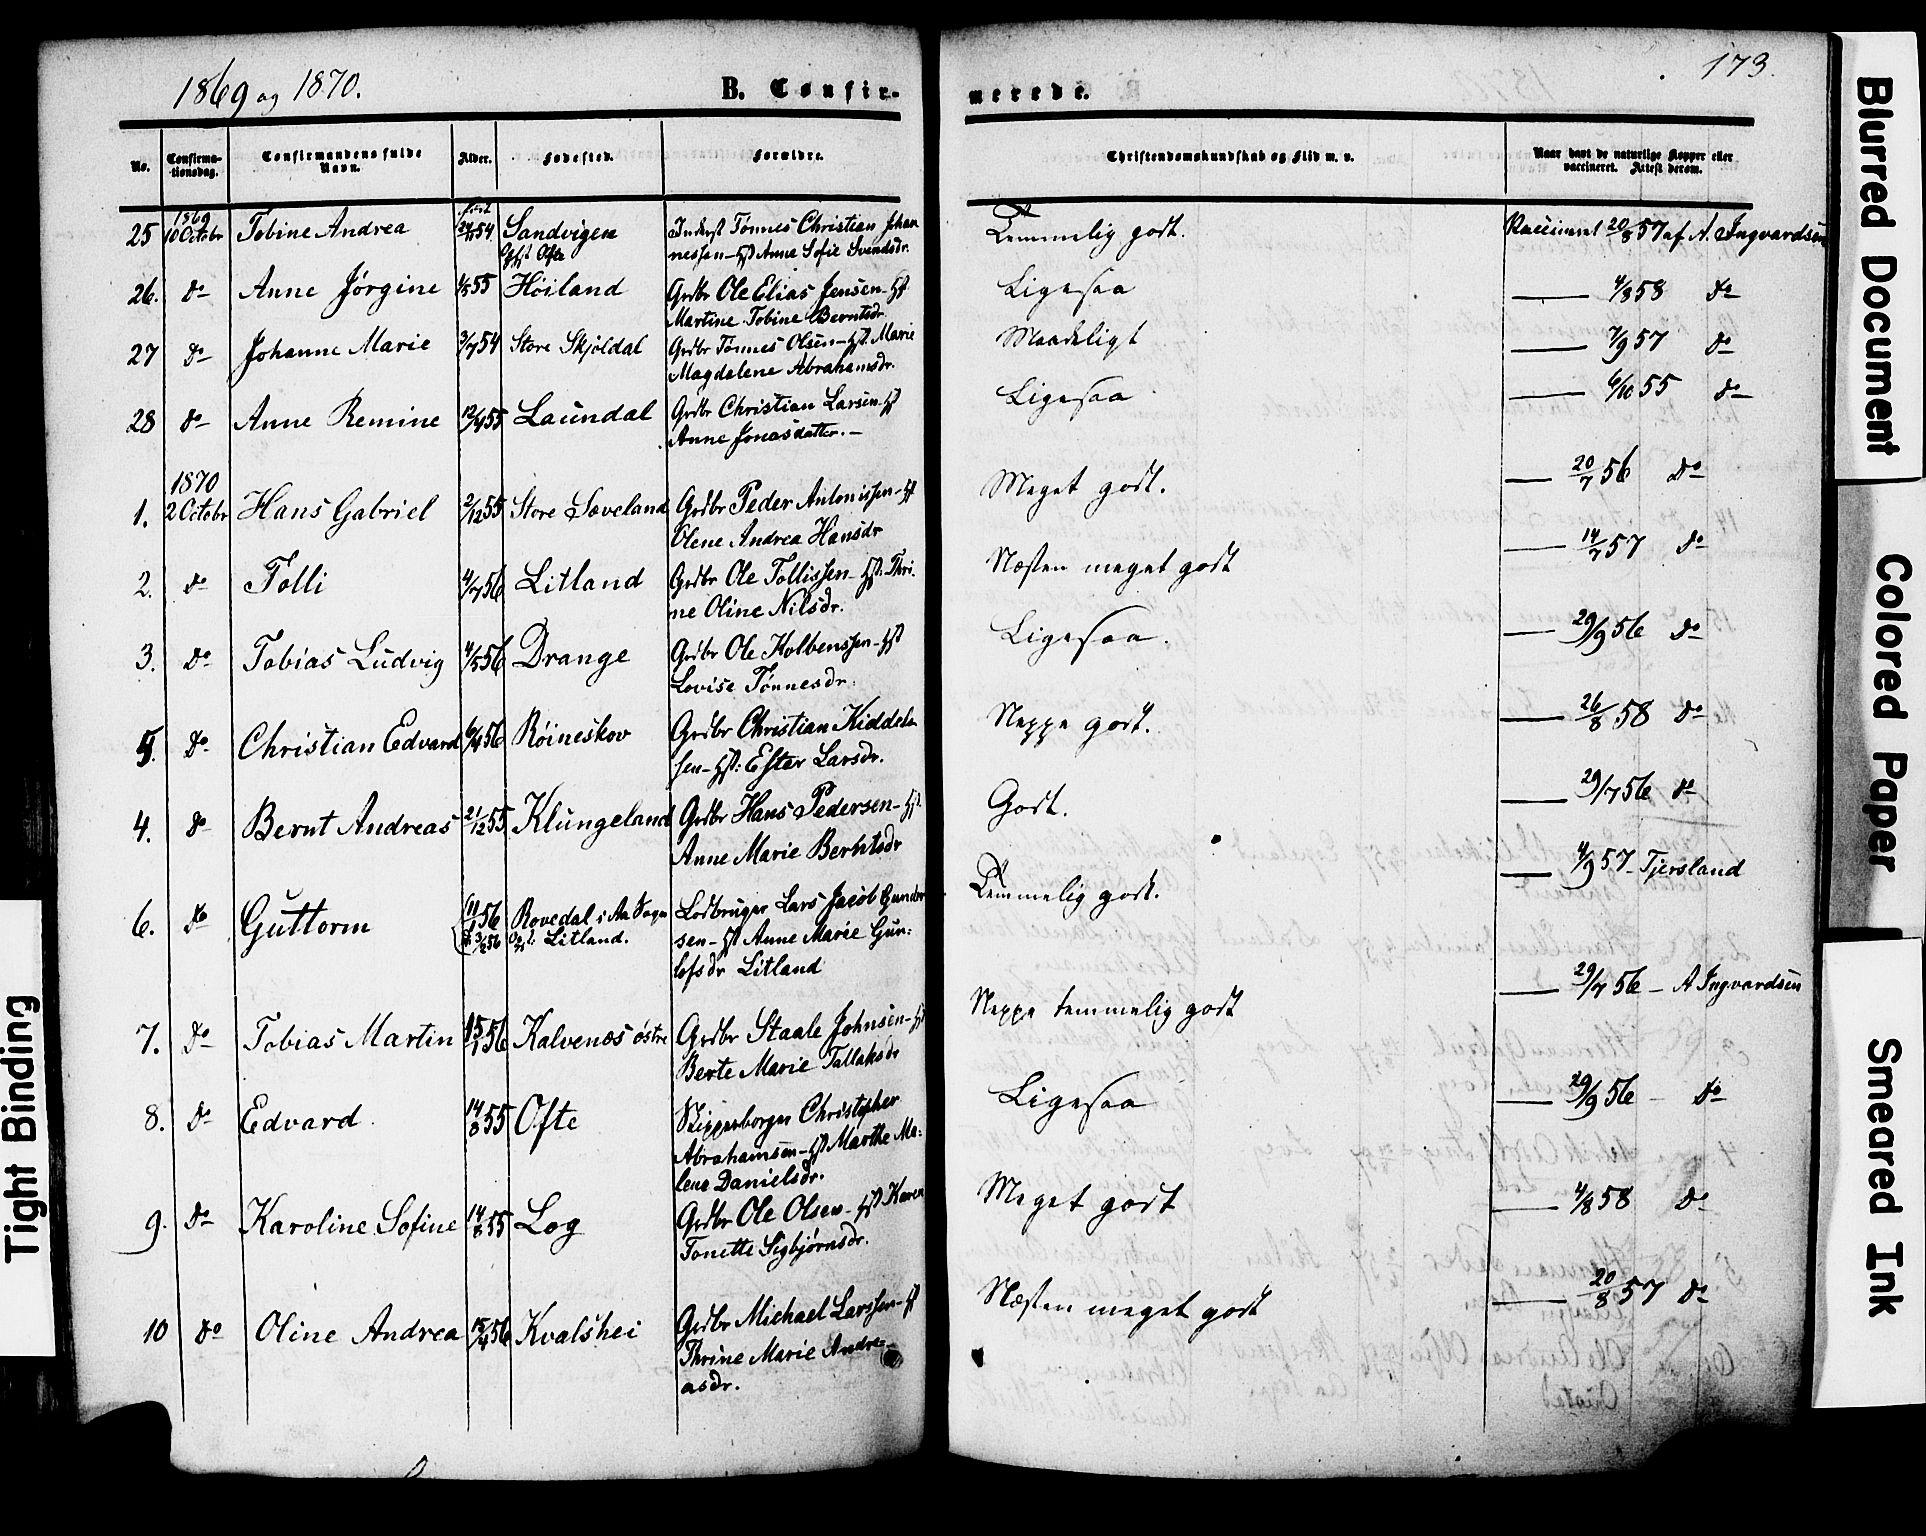 1869 og 1870.
B. Confir-
merede.
173.
No.
Confirma-
tionsdag.
Confirmandens fulde
Navn.
Alder.
Fødested.
Forældre.
Christendomskundskab og Flid m. v.
Naar havt de naturlige Kopper eller
vaccineret. Attest derom.
25 1869 10 Octobr Tobine Andrea født 54 Sandvigen
Opf. Ofte
Inderst Tønnes Christian Johan
nessen - Hst Anne Sofie Svendsdr.
Temmelig godt.
Vaccineret 20/8 57 af A. Ingvardsen
26. do Anne Jørgine 4/8 55 Høiland
Grdbr Ole Elias Jensen - Hst
Martine Tobine Berntsdr.
Ligesaa
4/8 58 do
27 do Johanne Marie 3/7 54 Store Skjøldal
Grdbr Tønnes Olsen - Hst. Marie
Magdalene Abrahamsdr.
Maadeligt
7/9 57 do
28 do Anne Remine 12/4 55 Laundal
Grdbr Christian Larsen - Hst
Anne Jonasdatter. -
Ligesaa
6/10 55 do
1870
1. 2 Octobr Hans Gabriel 2/12 55 Store Sæveland
Grdbr Peder Antonissen - Hst
Olene Andrea Hansdr
Meget godt.
20/7 56 do
2. do Tolli 4/7 56 Litland
Grdbr Ole Tollissen - Hst. Thri-
ne Oline Nilsdr.
Næsten meget godt
14/7 57 do
3. do Tobias Ludvig 4/5 56 Drange
Grdbr Ole Kolbenssen - Hst
Lovise Tønnesdr.
Ligesaa.
29/9 56 do
5. do Christian Edvard 6/4 56 Røineskov
Grdbr Christian Kiddels
sen - Hst: Ester Larsdr.
Neppe godt.
26/8 58 do
4. do Bernt Andreas 21/12 55 Klungeland
Grdbr Hans Pedersen - Hst.
Anne Marie Berntsdr
Godt.
29/7 56 do
6. do Guttorm 11/1 56 Rovedal i Aa Sogn
d. 3/2 56 Opf. Litland.
Lodbruger Lars Jacob Gunder
sen - Hst Anne Marie Gun-
lofsdr Litland
Temmelig godt.
4/9 57 - Tjersland
7. do Tobias Martin 15/1 56 Kalvenæs østre
Grdbr Staale Johnsen - Hst
Berte Marie Tallaksdr
Neppe temmelig godt
29/7 56 - A Ingvardsen
8. do Edvard 14/8 55 Ofte
Skipperborger Christopher
Abrahamsen - Hst Marthe Ma-
lene Danielsdr.
Ligesaa
29/9 56 - do
9. do Karoline Sofine 14/8 55 Log
Grdbr Ole Olsen - Hst Karen
Tonette Sigbjørnsdr.
Meget godt
4/8 58 do
10 do Oline Andrea 15/4 56 Kvalshei
Grdbr Michael Larssen - Hst
Thrine Marie Andre-
asdr.
Næsten meget godt
20/8 57 do
Tight Binding
Blurred Document
Colored Paper
Smeared Ink